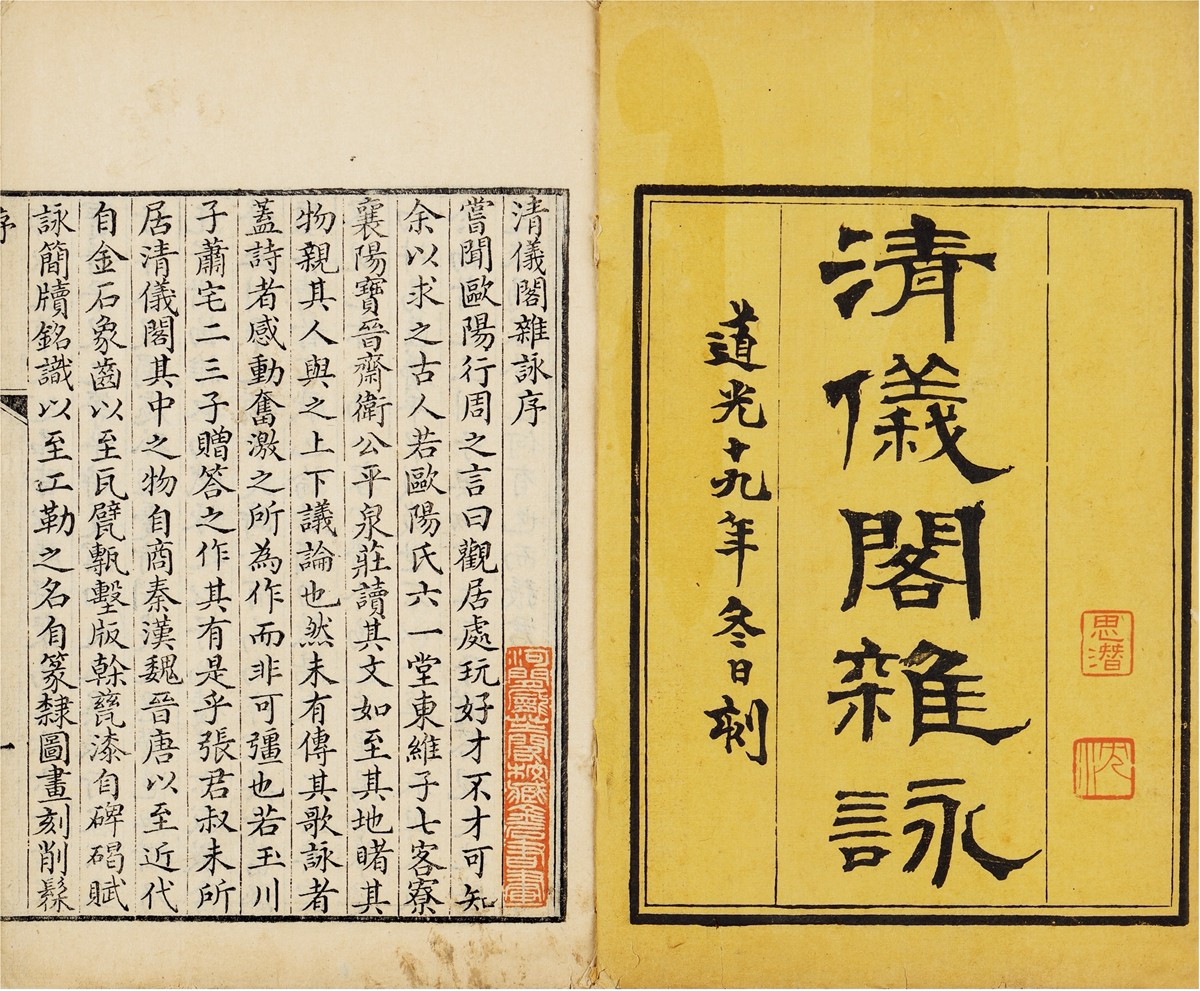 清儀閣雜詠
道光十九年冬日刻
思潛
沈
清儀閣雜詠序
嘗聞歐陽行周之言曰觀居處玩好才不才可知
余以求之古人若歐陽氏六一堂東維子七客寮
襄陽寶晉齋衛公平泉莊讀其文如至其地睹其
物親其人與之上下議論也然未有傳其歌詠者
蓋詩者感動奮激之所為作而非可彊也若玉川
子蕭宅二三子贈答之作其有是乎張君叔未所
居清儀閣其中之物自商秦漢魏晉唐以至近代
自金石象齒以至瓦甓甎墼版榦甆漆自碑碣賦
詠簡牘銘識以至工勒之名自篆隸圖畫刻削髹
序
一